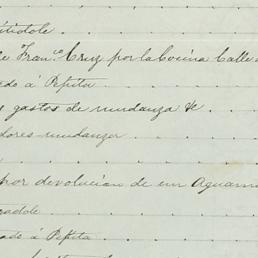 tidole
e Fran.co Cruz por la Cocina Calle
ado á Pepita
e gastos de mudanza &
dores mudanzar
por devolucion de un Aguama
radole
ado á Pepita